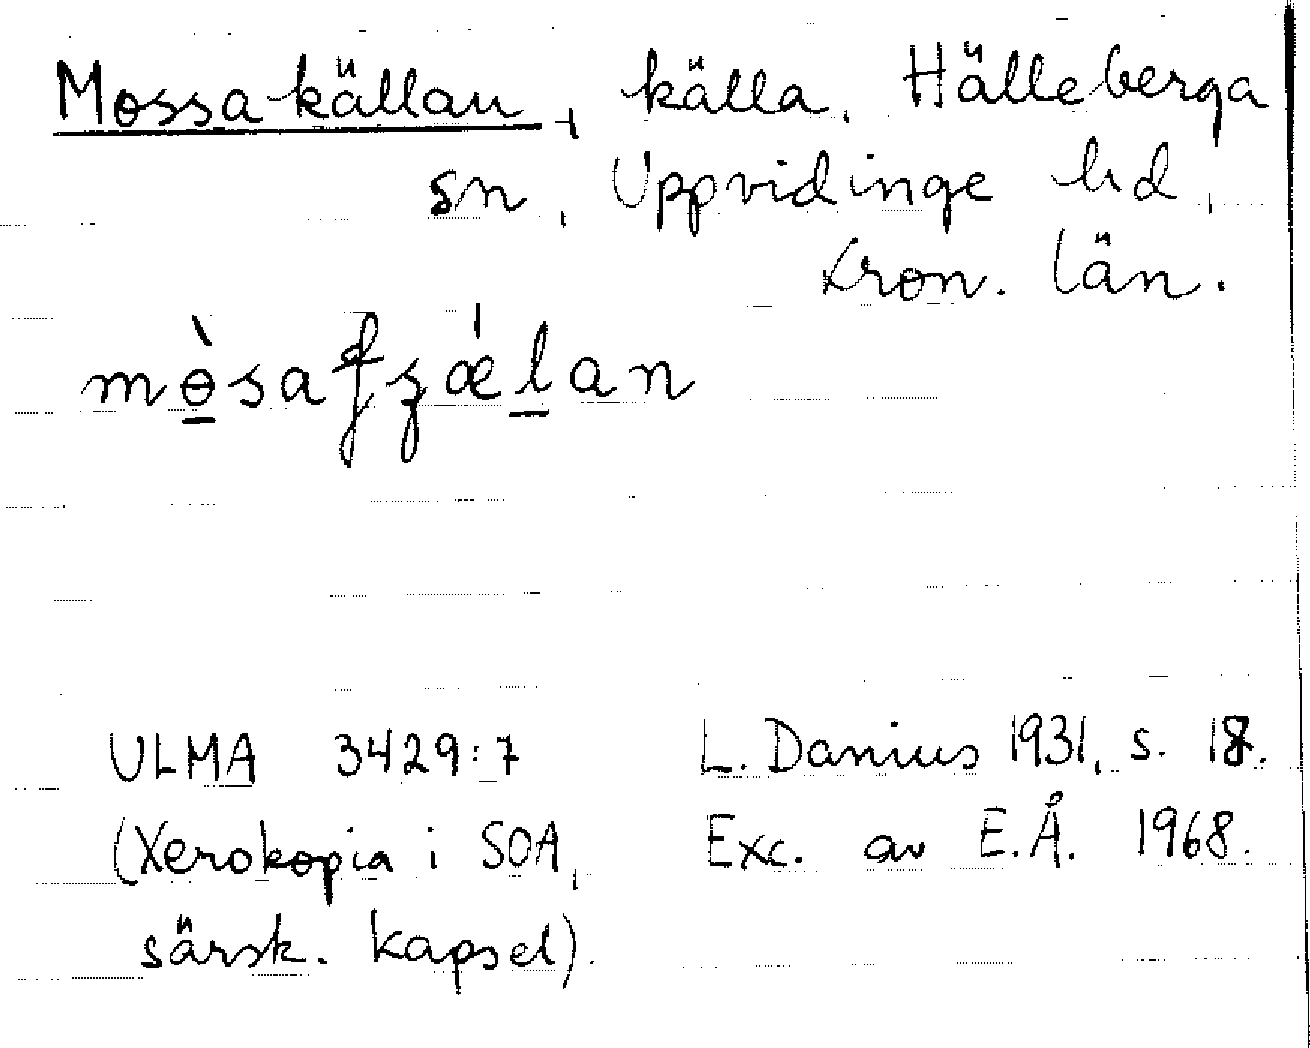 Mossakällan, källa, Hälleberga
sn, Uppvidinge hd,
Kron. län.
ULMA 3429:7 L. Danius 1931, s. 18.
(Xerokopia i SOA, Exc. av E.Å. 1968.
särsk. kapsel).